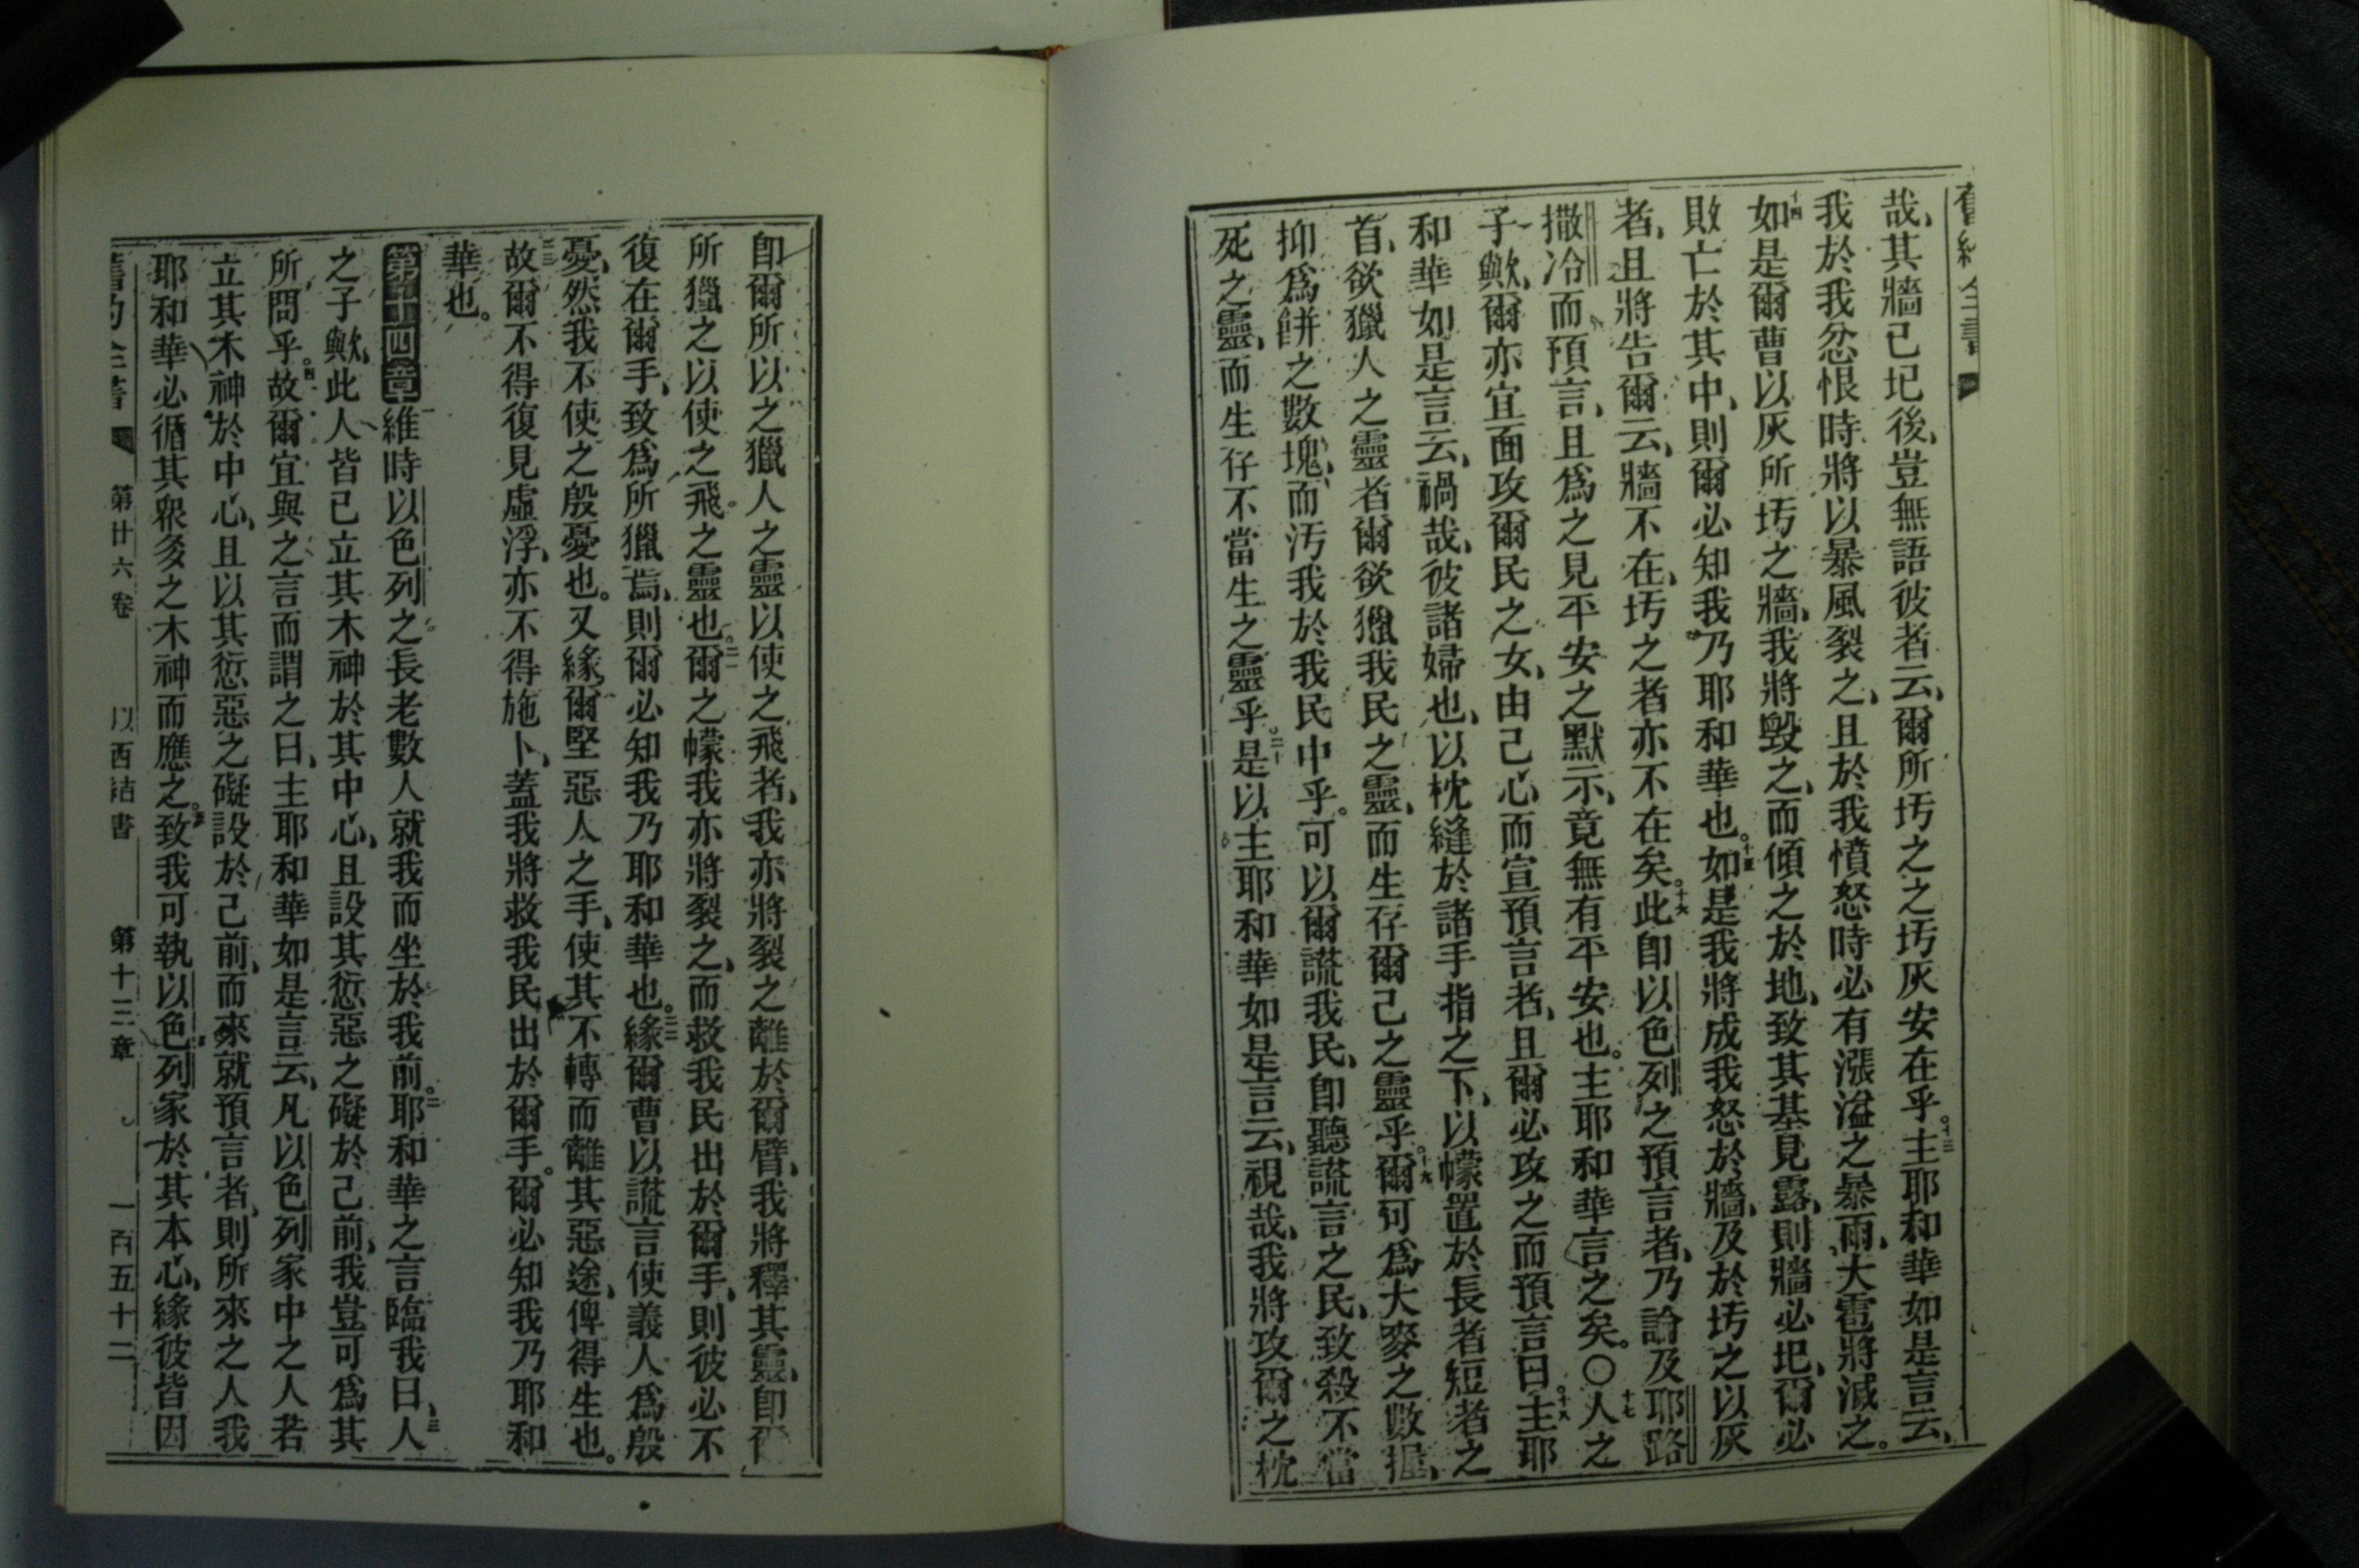 舊約全書
哉、其牆已圮後、豈無語彼者云、爾所圬之之圬灰安在乎。十三主耶和華如是言云、
我於我忿恨時、將以暴風裂之、且於我憤怒時必有漲溢之暴雨、大雹將滅之。
十四如是爾曹以灰所圬之牆、我將毀之、而傾之於地、致其基見露、則牆必圮、爾必
敗亡於其中、則爾必知我乃耶和華也。十五如是我將成我怒於牆、及於圬之以灰
者、且將告爾云、牆不在、圬之者亦不在矣。十六此卽以色列之預言者、乃論及耶路
撒冷而預言、且爲之見平安之默示、竟無有平安也。主耶和華言之矣。〇十七人之
子歟、爾亦宜面攻爾民之女、由己心而宣預言者、且爾必攻之而預言曰。十八主耶
和華如是言云、禍哉、彼諸婦也、以枕縫於諸手指之下、以幪置於長者短者之
首、欲獵人之靈者、爾欲獵我民之靈、而生存爾己之靈乎。十九爾可爲大麥之數握、
抑爲餅之數塊、而汚我於我民中乎。可以爾謊我民、卽聽謊言之民、致殺不當
死之靈、而生存不當生之靈乎。二十是以主耶和華如是言云、視哉、我將攻爾之枕
卽爾所以之獵人之靈以使之飛者、我亦將裂之離於爾臂、我將釋其靈、卽爾
所獵之以使之飛。之靈也。二一爾之幪我亦將裂之、而救我民出於爾手、則彼必不
復在爾手、致爲所獵焉、則爾必知我乃耶和華也。二二緣爾曹以謊言使義人爲殷
憂、然我不使之殷憂也。又緣爾堅惡人之手、使其不轉而離其惡途、俾得生也。
二三故爾不得復見虛浮、亦不得施卜、蓋我將救我民出於爾手。爾必知我乃耶和
華也。
第十四章維時以色列之長老數人就我而坐於我前。二耶和華之言臨我曰、三人
之子歟、此人皆已立其木神於其中心、且設其愆惡之礙於己前、我豈可爲其
所問乎。四故爾宜與之言而謂之曰、主耶和華如是言云、凡以色列家中之人若
立其木神於中心、且以其愆惡之礙設於己前、而來就預言者、則所來之人我
耶和華必循其衆多之木神而應之。五致我可執以色列家於其本心、緣彼皆因
舊約全書 第廿六卷 以西結書 第十三章 一百五十二